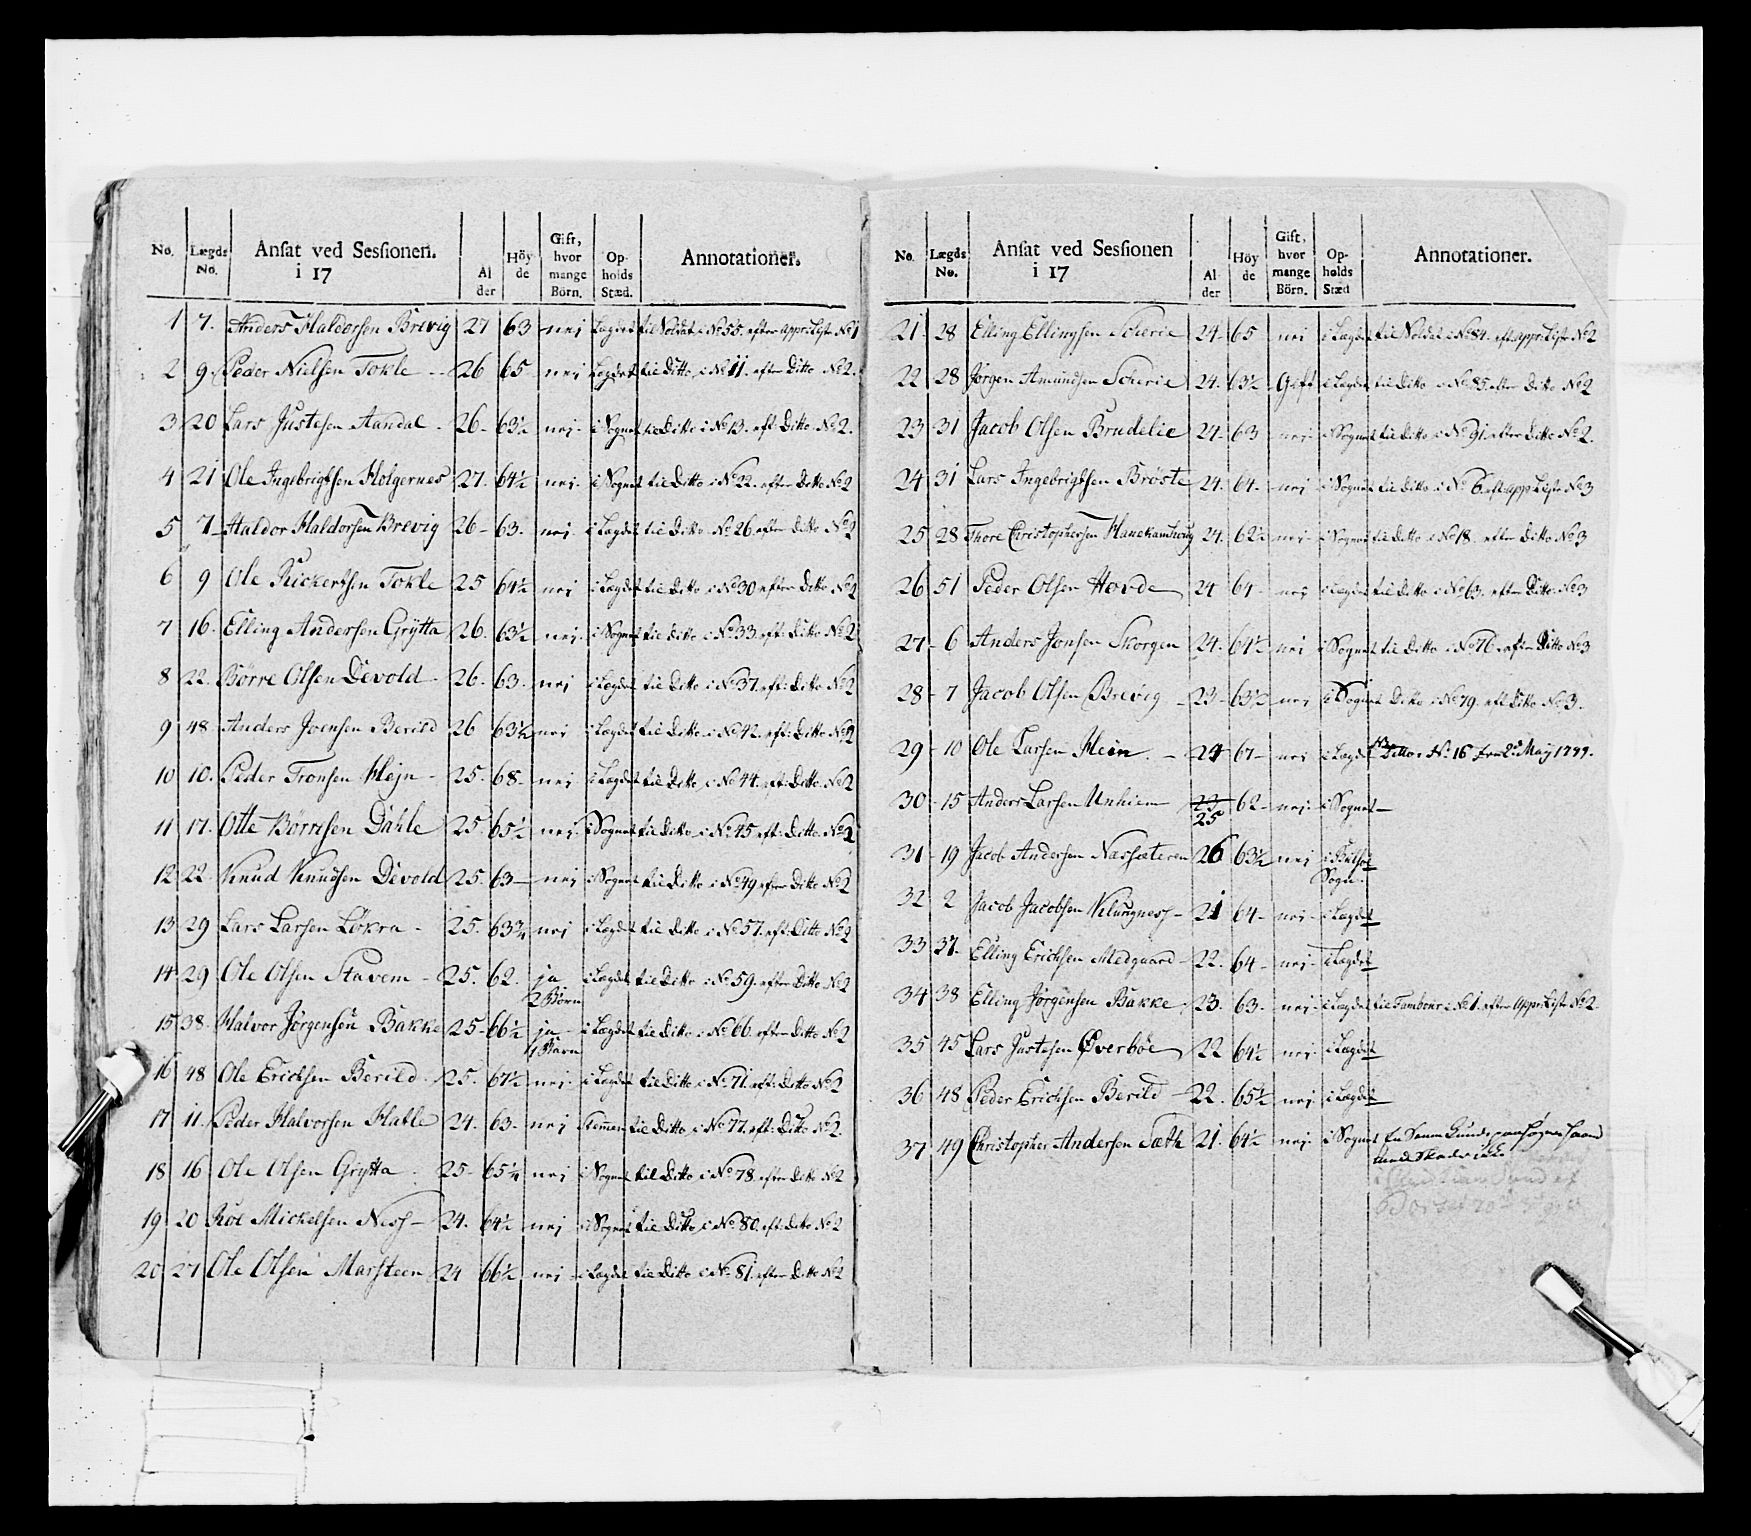 No. Lægds No. Ansat ved Sessionen. i 17 Al der Höy de Gift, hvor mange Börn. Op- holds Stæd. Annotationer.
1 7. Anders Haldorsen Brevig 27 63 nei Lægdet til Soldat i No 55. efter appr: Liste No 1
2 9. Peder Nielsen Tokle 26 65 nei Lægdet til Ditto i No 11. efter Ditto No 2.
3 20 Lars Justesen Aandal 26 63½ nei i Sognet til Ditto i No 13. eft: Ditto No 2.
4 21 Ole Ingebrigtsen Holgernes 27. 64½ nei i Sognet til Ditto i No 22. efter Ditto No 2
5 7 Haldor Haldorsen Brevig 26 63. nei i Lægdet til Ditto No 26. efter Ditto No 2
6 9 Ole Rickertsen Tokle 25 64½ nei i Lægdet til Ditto i No 30 efter Ditto No 2
7 16. Elling Andersen Grÿtta 26. 63½ nei i Sognet til Ditto i No 33. eft: Ditto No 2
8 22. Börre Olsen Devold 26. 63. nei i Lægdet til Ditto i No 37. eft: Ditto No 2
9 48 Anders Joensen Berild 26 63½ nei i Lægdet til Ditto i No 42. eft: Ditto No 2
10 10. Peder Tronsen Hejn 25. 68 nei i Lægdet til Ditto i No 44. eft: Ditto No 2
11 17. Otte Börresen Dahle 25 65½ nei i Sognet til Ditto i No 45 eft: Ditto No 2
12 22 Knud Knudsen Devold 25. 63 nei i Sognet til Ditto i No 49 efter Ditto No 2
13 29 Lars Larsen Lökra 25. 63¾ nei i Lægdet til Ditto i No 57. eft: Ditto No 2
14 29 Ole Olsen Stavem 25. 62. ja 2 Börn i Lægdet til Ditto i No 59. efter Ditto No 2
15 38. Halvor Jörgensen Bakke 25 66½ ja 1 Barn i Lægdet til Ditto i No 66. efter Ditto No 2
16 48 Ole Erichsen Berild 25. 67½ nei i Lægdet til Ditto i No 71. eft: Ditto No 2
17 11. Peder Halvorsen Hatle 24. 63. nei til Ditto i No 77. eft: Ditto No 2.
18 16 Ole Olsen Grÿtta 25 65¼ nei i Sognet til Ditto i No 78. efter Ditto No 2
19 20 Roe Mickelsen Ness 24. 64½ nei i Sognet til Ditto i No 80. eft: Ditto No 2
20 27 Ole Olsen Marsteen 24 66½ nei i Lægdet til Ditto i No 81. efter Ditto No 2
No. Lægds No. Ansat ved Sessionen i 17 Al der Höy de Gift, hvor mange Börn. Op- holds Stæd Annotationer.
21 28 Elling Ellingsen Scherie 24. 65 nei i Lægdet til Soldat i No 84. eft: appr: Liste No 2
22 28 Jörgen Amundsen Scherie 24. 63½ Gift i Lægdet til Ditto i No 85. efter Ditto No 2
23 31 Jacob Olsen Brudelie 24 63 nei i Sognet til Ditto i No 91. efter Ditto No 2.
24 31 Lars Ingebrigtsen Bröste 24. 64. nei i Sognet til Ditto i No 6. eft: app: Liste No 3
25 28 Thore Christophersen Hanekamhoug 24. 62½ nei i Sognet til Ditto i No 18. efter Ditto No 3
26 51 Peder Olsen Horde 24 64 nei i Lægdet til Ditto i No 63. efter Ditto No 3
27 6 Anders Jonsen Skorgen 24. 64½ nei i Sognet til Ditto i No 76. efter Ditto No 3
28 7 Jacob Olsen Brevig 23 63½ nei i Sognet Ditto i No 79. eft: Ditto No 3.
29 10 Ole Larsen Hein 24 67 nei i Lægdet til Ditto i No 16 fra 2d May 1799.
30 15 Anders Larsen Unhiem 23 25 62 nei i Sognet
31 19 Jacob Andersen Nassæteren 26 63½ nei i Sogn
32 2 Jacob Jacobsen Nelungness 21 64 nei i Lægdet
33 37. Elling Erichsen Medgaard 22. 64 nei i Lægdet
34 38 Elling Jörgensen Bakke 23. 63. nei i Lægdet til Tambour i No 1. efter Appr: Liste No 2
35 45 Lars Justesen Överböe 22 64½ nei i Lægdet
36 48 Peder Erichsen Berild 22. 65½ nei i Lægdet
37 49 Christopher Andersen Sæth 21. 64½ nei i Sognet